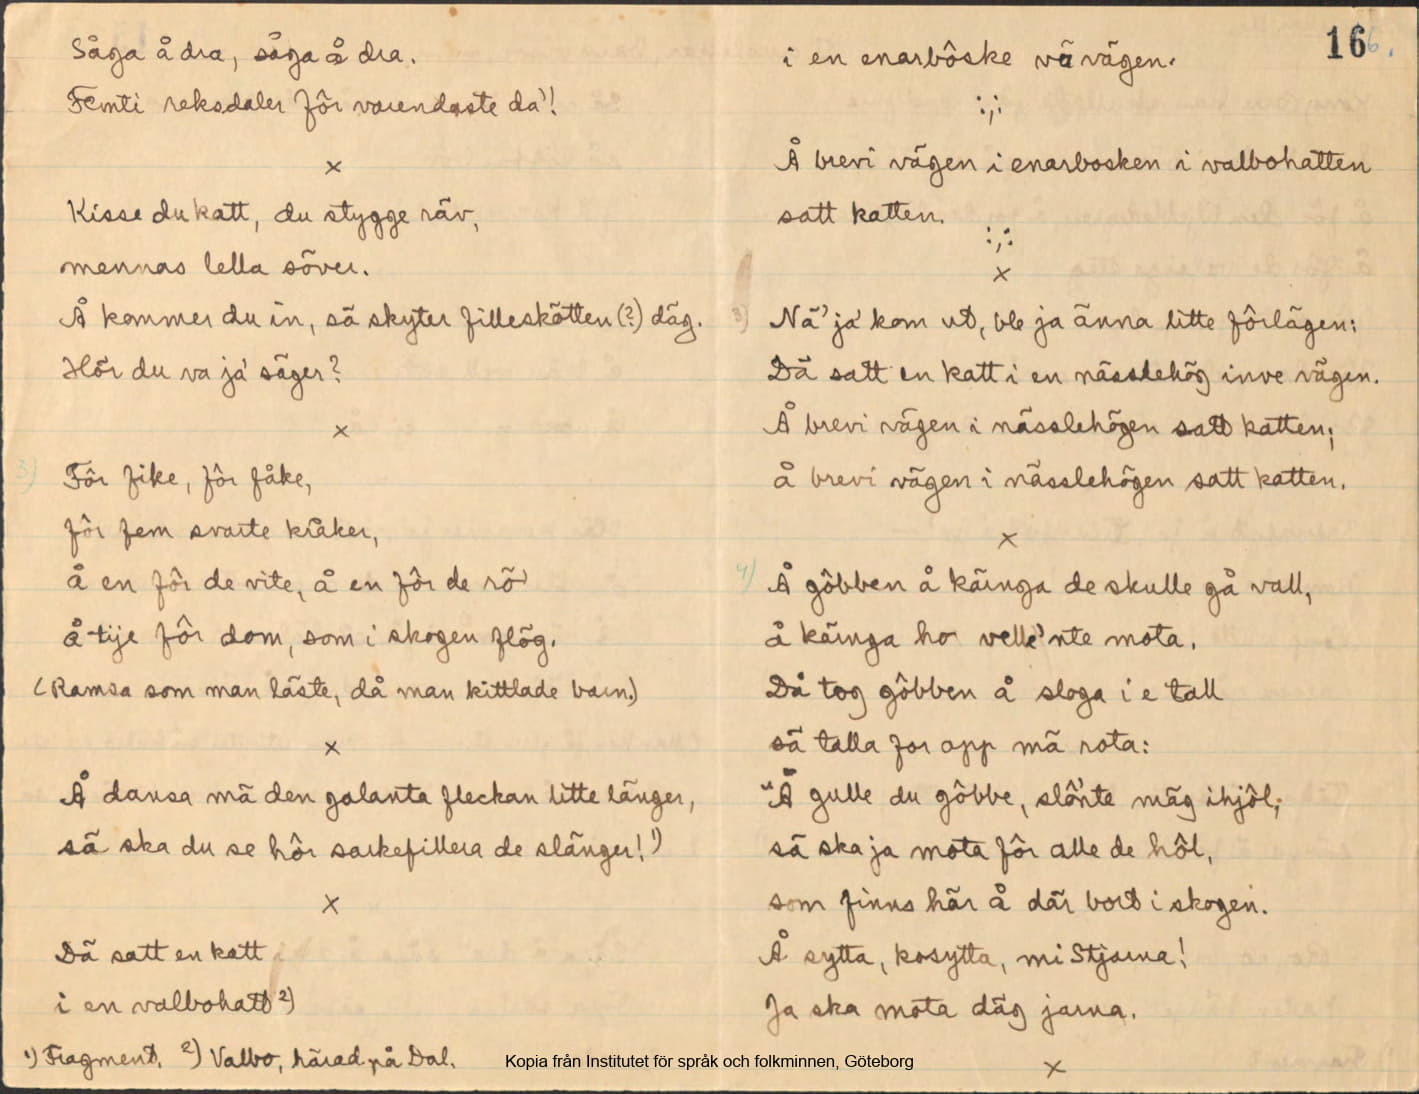 Såga å dra, såga å dra.
Femti reksdaler fôr varendaste da'!
×
Kisse du katt, du stygge räv,
mennas lella söver.
Å kommer du in, sä skyter filleskötten (?) däg.
Hör du va ja' säger?
×
3) Fôr fike, fôr fåke,
fôr fem svarte kråker,
å en fôr de vite, å en fôr de rö'
å tije fôr dom, som i skogen flög.
(Ramsa som man läste, då man kittlade barn.)
×
Å dansa mä den galanta fleckan litte länger,
sä ska du se hôr sarkefillera de slänger! 1)
×
Dä satt en katt
i en valbohatt 2)
1) Fragment. 2) Valbo, härad på Dal.
16 6.
i en enarbôske vä vägen.
:,:
Å brevi vägen i enarbosken i valbohatten
satt katten.
:,:
×
3) Nä' ja' kom ut, ble ja änna litte fôrlägen:
Dä satt en katt i en nässlehög inve vägen.
Å brevi vägen i nässlehögen satt katten;
å brevi vägen i nässlehögen satt katten.
×
4) Å gôbben å käringa de skulle gå vall,
å käringa ho velle'nte mota.
Då tog gôbben å sloga i e tall
sä talla for opp mä rota:
"Ä gulle du gôbbe, slô'nte mäg ihjôl;
sä ska ja mota fôr alle de hôl,
som finns här å där bort i skogen.
Å sytta, kosytta, mi Stjarna!
Ja ska mota däg jarna.
×
Kopia från Institutet för språk och folkminnen, Göteborg